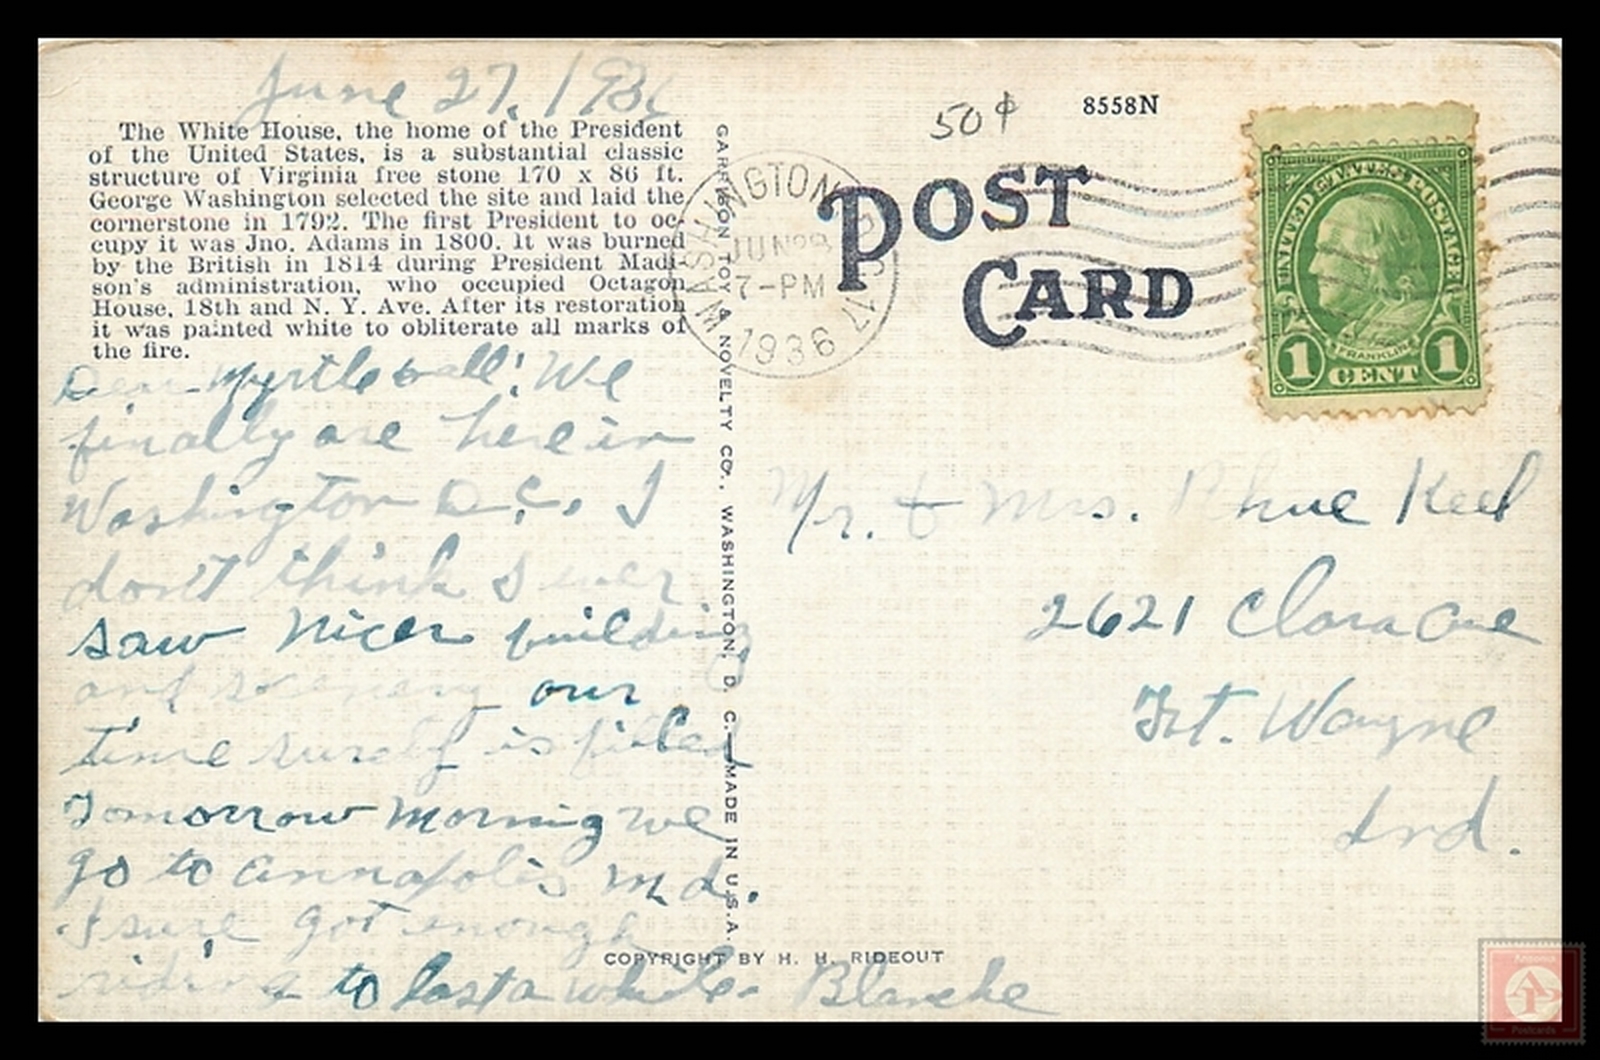 June 27, 1936
The White House, the home of the President
of the United States, is a substantial classic
structure of Virginia free stone 170 x 86 ft.
George Washington selected the site and laid the
cornerstone in 1792. The first President to oc-
cupy it was Jno. Adams in 1800. It was burned
by the British in 1814 during President Madi-
son's administration, who occupied Octagon
House, 18th and N. Y. Ave. After its restoration
it was painted white to obliterate all marks of
the fire.
Dear Myrtle & all: We
finally are here in
Washington D.C. I
don't think I ever
saw nicer building
and scenery our
time surely is filled
Tomorrow morning we
go to Annapolis Md.
I sure got enough
riding to last a while. Blanche
GARRISON TOY & NOVELTY CO., WASHINGTON, D. C.—MADE IN U.S.A.
COPYRIGHT BY H. H. RIDEOUT
WASHINGTON D.C. 17
JUN 28
7-PM
1936
50¢
8558N
POST
CARD
UNITED STATES POSTAGE
FRANKLIN
1 CENT 1
Mr. & Mrs. Keel
2621 Clara Ave
Ft. Wayne
Ind.
Postcards